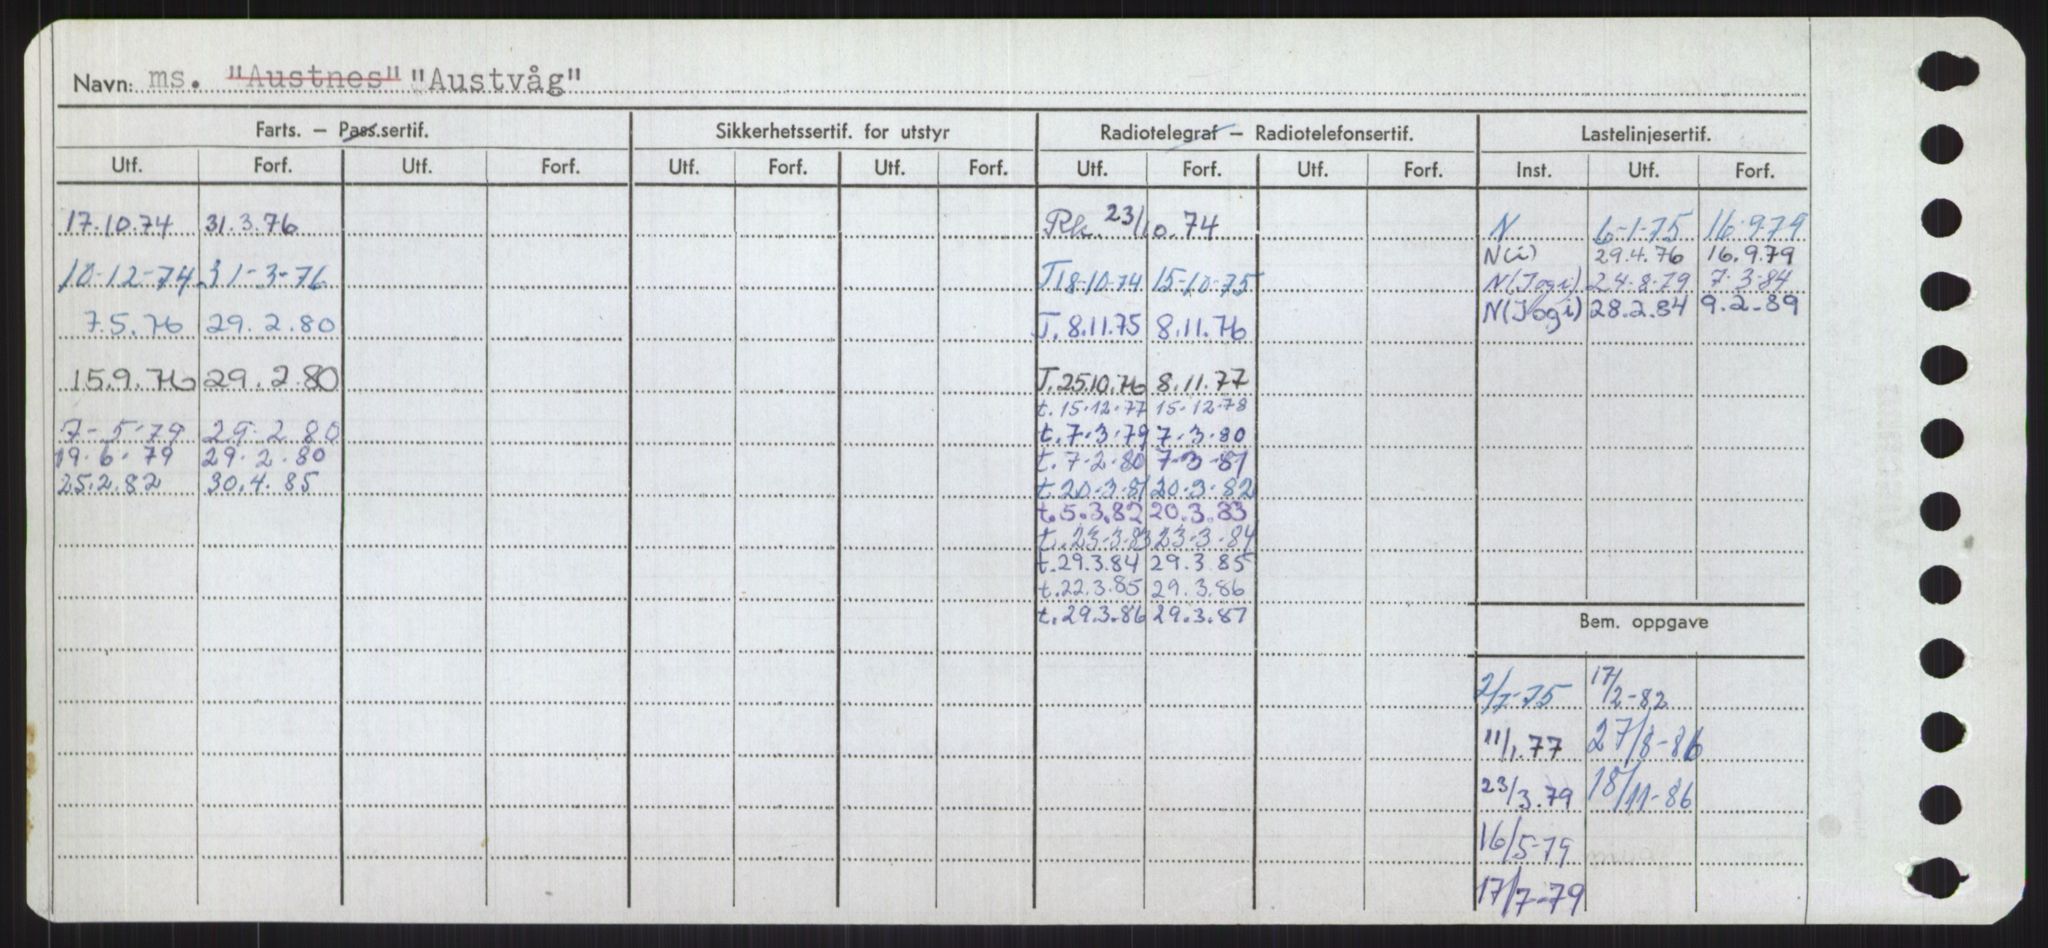 Navn: ms. "Austnes" "Austvåg"
Farts. – Pass.sertif. Sikkerhetssertif. for utstyr Radiotelegraf – Radiotelefonsertif. Lastelinjesertif.
Utf. Forf. Utf. Forf. Utf. Forf. Utf. Forf. Utf. Forf. Utf. Forf. Inst. Utf. Forf.
17.10.74 31.3.76 Rk. 23/10.74 N 6-1-75 16-9-79
N(i) 29.4.76 16.9.79
10-12-74 31-3-76 T 18-10-74 15-10-75 N(Jogi) 24-8-79 7-3-84
N(Jogi) 28.2.84 9.2.89
7.5.76 29.2.80 T. 8.11.75 8.11.76
15.9.76 29.2.80 T. 25.10.76 8.11.77
t. 15-12-77 15-12-78
7-5-79 29-2-80 t. 7-3-79 7-3-80
19.6.79 29.2.80 t. 7-2-80 7-3-81
25.2.82 30.4.85 t. 20-3-81 20-3-82
t. 5.3.82 20.3.83
t. 23-3-83 23-3-84
t. 29.3.84 29.3.85
t. 22.3.85 29.3.86
t. 29.3.86 29.3.87
Bem. oppgave
2/7-75 17/2-82
11/1.77 27/8-86
23/3.79 18/11-86
16/5-79
17/7-79